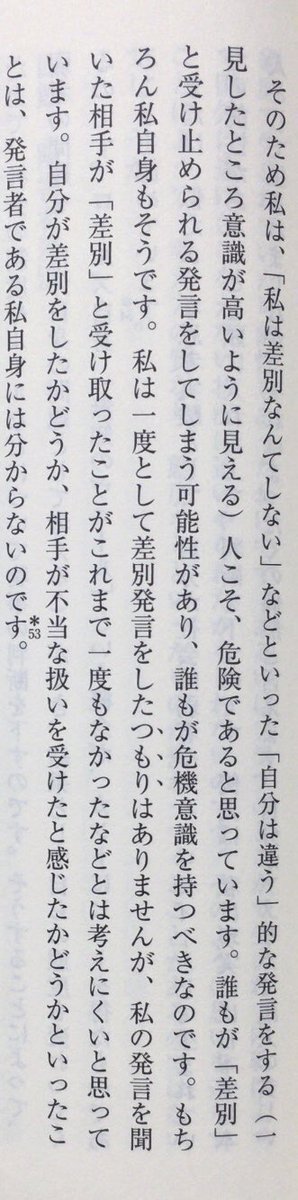 そのため私は、「私は差別なんてしない」などといった「自分は違う」的な発言をする（一
見したところ意識が高いように見える）人こそ、危険であると思っています。誰もが「差別」
と受け止められる発言をしてしまう可能性があり、誰もが危機意識を持つべきなのです。もち
ろん私自身もそうです。私は一度として差別発言をしたつもりはありませんが、私の発言を聞
いた相手が「差別」と受け取ったことがこれまで一度もなかったなどとは考えにくいと思って
います。自分が差別をしたかどうか、相手が不当な扱いを受けたと感じたかどうかといったこ
とは、発言者である私自身には分からないのです。*53